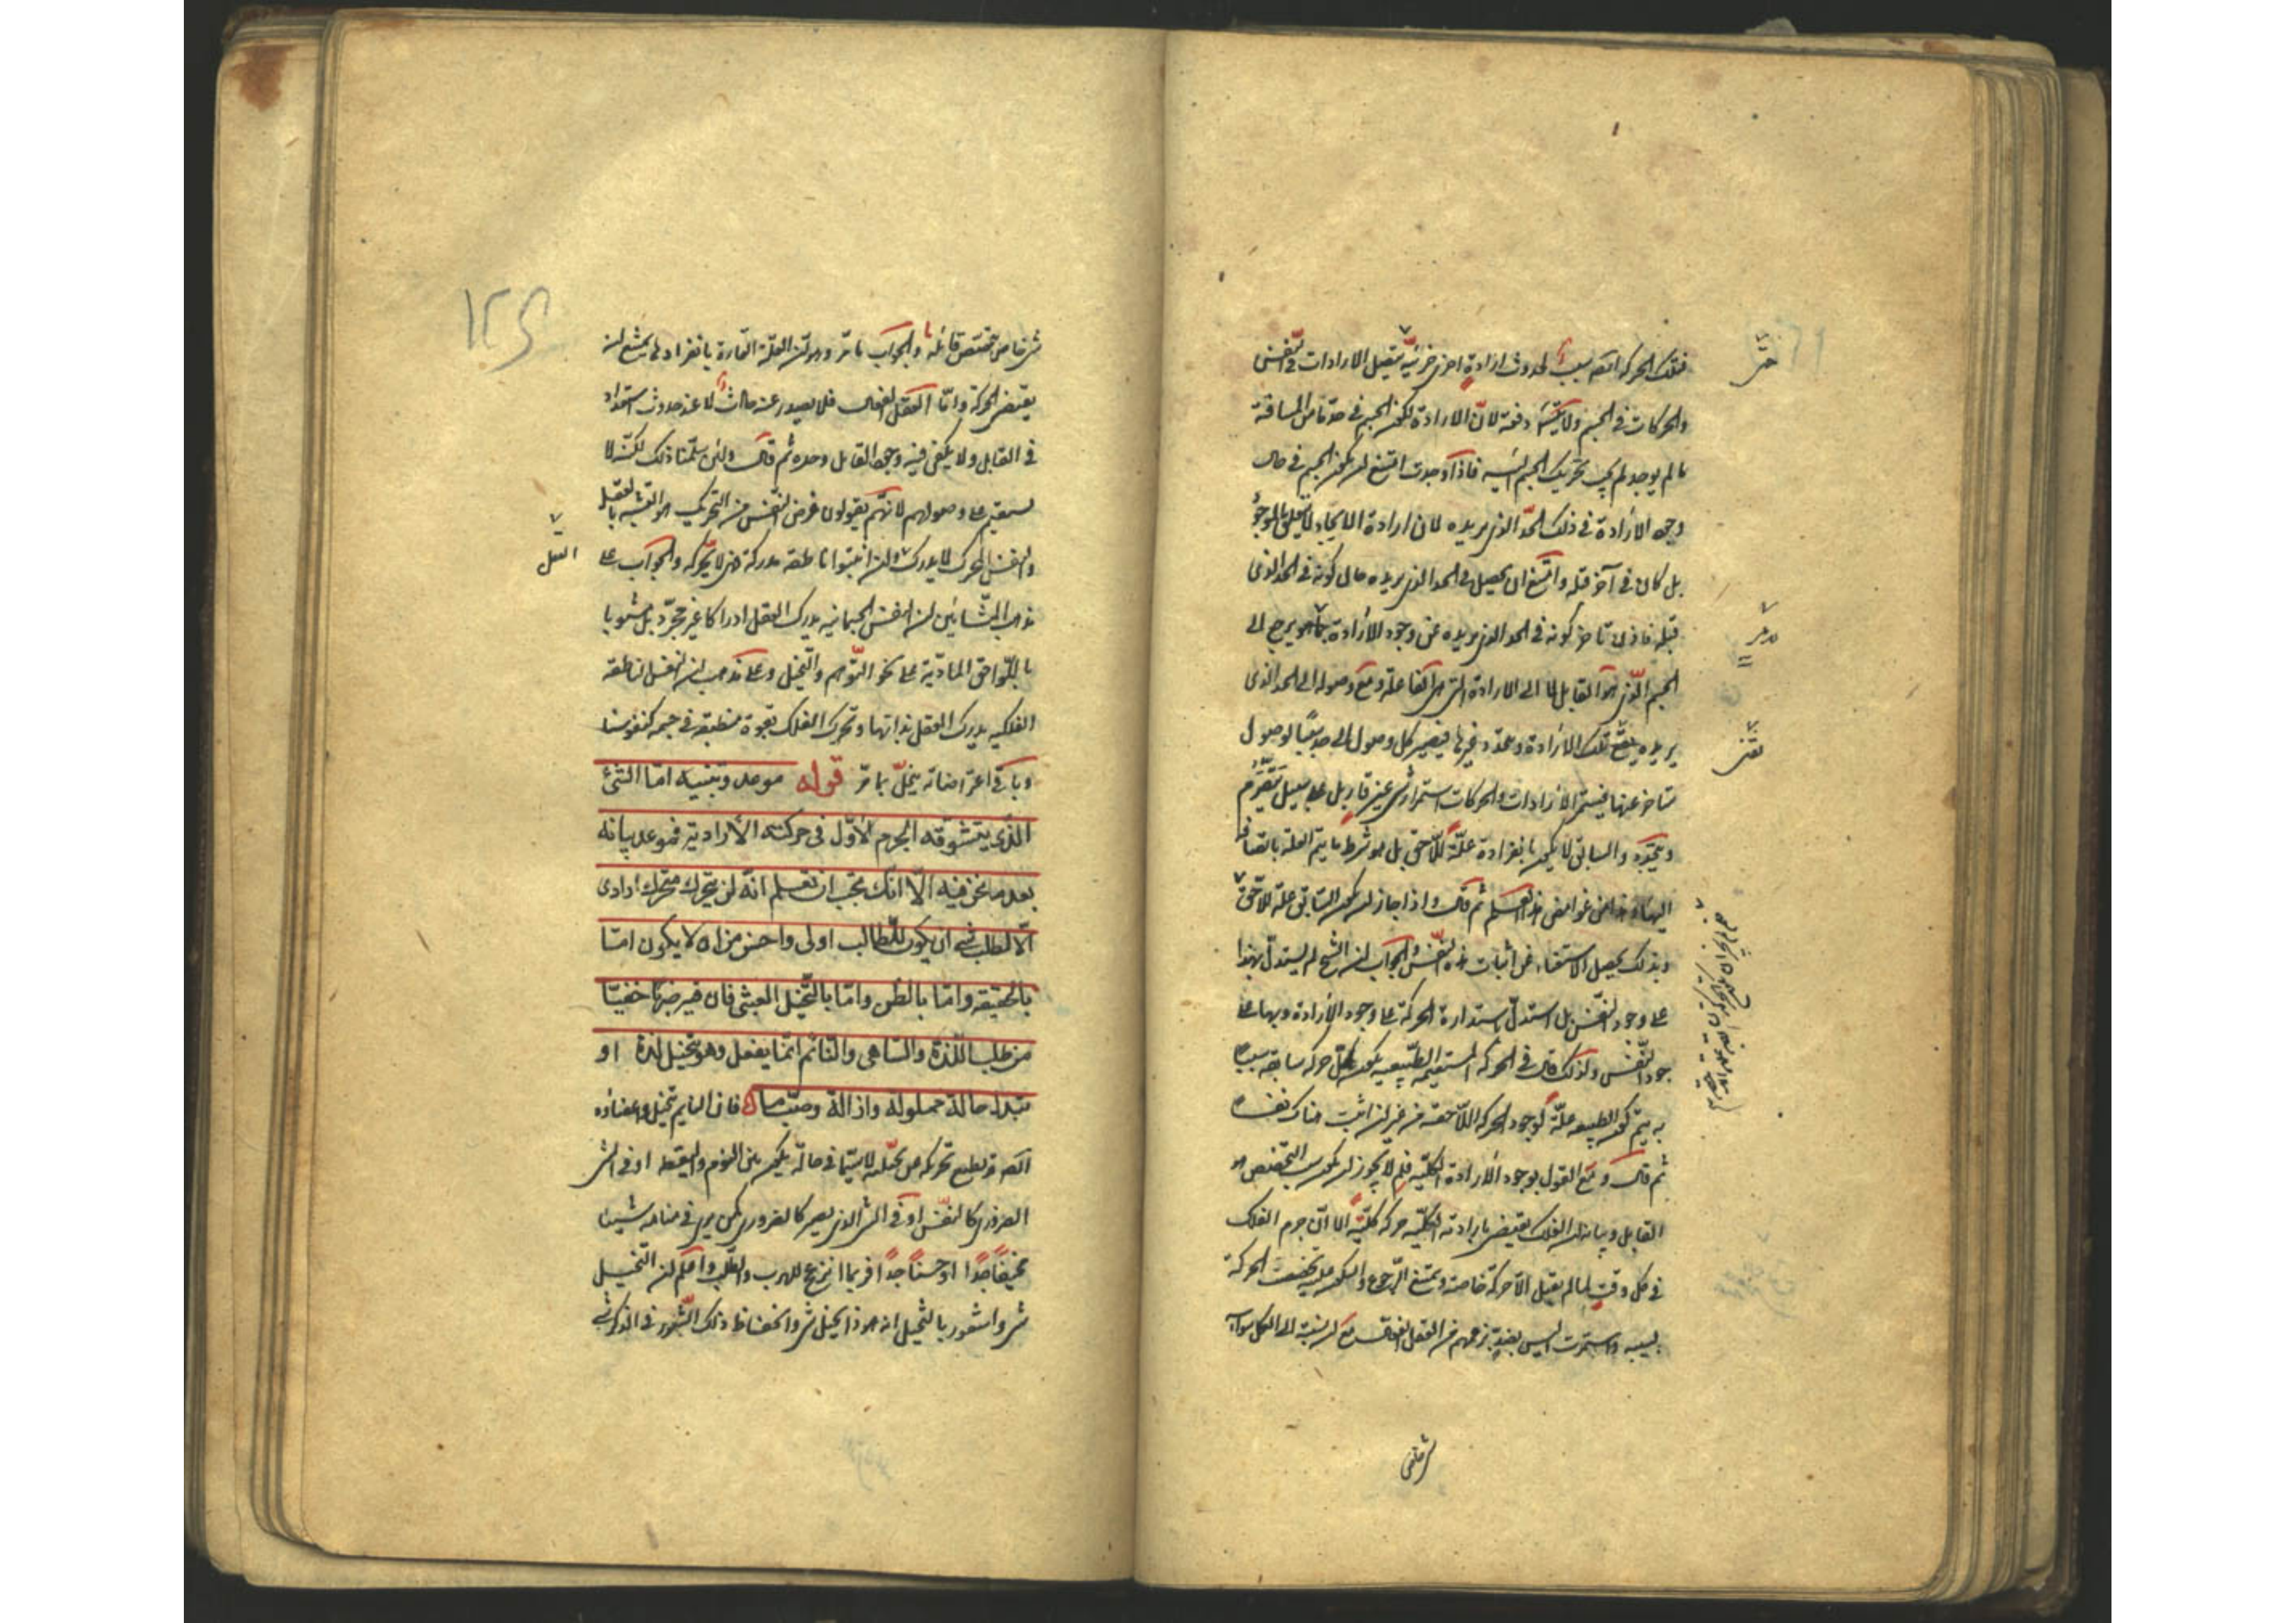 فتلك الحركة ايضه سبب لحدوث ارادة اخرى جزئية يتصل الارادات فى النفس
والحركات فى الجسم ولا يكون دفعة لان الارادة لكون الجسم فى حد ما من المسافة
ما لم يوجد لم يجب تحريك الجسم اليه فاذا وجدت امتنع ان يكون الجسم فى حال
وجود الارادة فى ذلك الحد الذى يريده لان ارادة الايجاد لا يتعلق بالموجود
بل كان فى آخر قبله وامتنع ان يحصل فى الحد الذى يريده حال كونه فى الحد الذى
قبله فاذن تاخر كونه فى الحد الذى يريده عن وجود الارادة يرجع الى
الجسم الذى هو القابل لا الى الارادة التى هى الفاعلة ومع وصوله الى الحد الذى
يريده تلك الارادة ويتجدد غيرها فيصير كل وصول الى حد سببا لوصول
متاخر عنها فيستمر الارادات والحركات استمرار شئ غير قار بل على سبيل تصرم
وتجدد والسابق لا يكون بانفراده علة للاحق بل هو شرط ما يتم العلة بانضيافه
اليها وهذا من غوامض هذا العلم ثم قال واذا جاز ان يكون السابق علة للاحق
وبذلك يحصل الاستغناء عن اثبات هذه النفس والجواب ان الشيخ لم يستدل بهذا
على وجود النفس بل استدل باستدارة الحركة على وجود الارادة وبها على
وجود النفس ولذلك قال فى الحركة المستقيمة الطبيعيه يكون كل حركة سابقة سببا
به يتم كون الطبيعه علة لوجود الحركة اللاحقة من غير ان اثبت هناك نفسا
ثم قال ومع القول بوجود الارادة الكلية فلم لا يجوز ان يكون سبب التخصص هو
القابل وبيانه ان الفلك يقتضى بارادته الكلية حركة كلية الا ان جرم الفلك
فى كل وقت لما لم يقبل الا حركة خاصة ويمتنع الرجوع والسكون عليه تخصصت الحركة
بسببه واستمرت اليس يفيض بزعمهم من العقل الفعال مع ان نسبته الى الكل سواء
شئ خاص
شئ خاص تخصص قابله والجواب ما مر وهو ان العلة القارة بانفرادها يمتنع ان
يقتضى الحركة واما العقل الفعال فلا يصدر عنه حادث الا عند حدوث استعداد
فى القابل ولا يكفى فيه وجود القابل وحده ثم قال ولئن سلمنا ذلك لكنه لا
يستقيم على اصولهم لانهم يقولون غرض النفس من التحريك هو التشبه بالعقل
والنفس المحرك لا يدرك وان اثبتوا ناطقه مدركة فهى لا يحركه والجواب على
العقل
مذهب المشائين ان النفس الجسمانيه يدرك العقل ادراكا غير مجرد بل مشوبا
باللواحق المادية على نحو التوهم والتخيل وعلى مذهب ان النفس الناطقه
الفلكيه يدرك العقل بذاتها وتحرك الفلك بقوة منطبعة فى جسمه كنفوسنا
وباقى اعتراضاته ينحل بما مر قوله موعد وتنبيه اما الشئ
الذى يتشوقه الجرم الاول فى حركته الارادية فموعد بيانه
بعد ما نحن فيه الا انك يجب ان تعلم انه لن يتحرك متحرك ارادى
الا لطلب شئ ان يكون للطالب اولى واحسن من ان لا يكون اما
بالحقيقه واما بالظن واما بالتخيل العبثى فان فيه ضربا خفيا
من طلب اللذة والساهى والنائم انما يفعل وهو يتخيل لذة او
تبدل حالة مملولة وازالة وصب ما فان النايم يتخيل واعضاؤه
ايضه قد يطيع تحريكه عن تخيله لا سيما فى حالة يكون بين النوم واليقظه او فى الشئ
الضرورى كالنفس او فى الشئ الذى يصير كالضرورى كمن يرى فى منامه شيئا
مخيفا جدا او حسنا جدا فربما انزعج للهرب والطلب واعلم ان التخيل
شئ واشعور بالتخيل انه هوذا يتخيل شئ وانحفاظ ذلك الشعور فى الذكر شئ